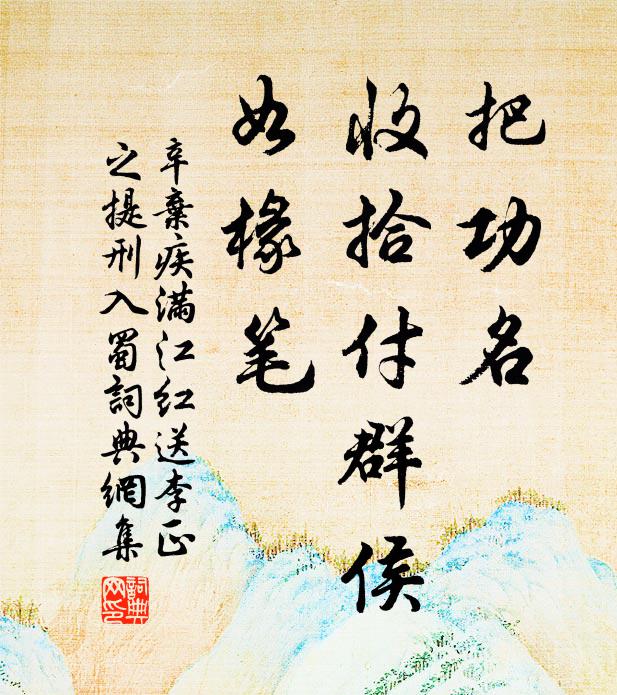 把功名
收拾付群侯
如椽笔
辛棄疾满江红送李正
之提刑入蜀詞典網集
詞典
网印